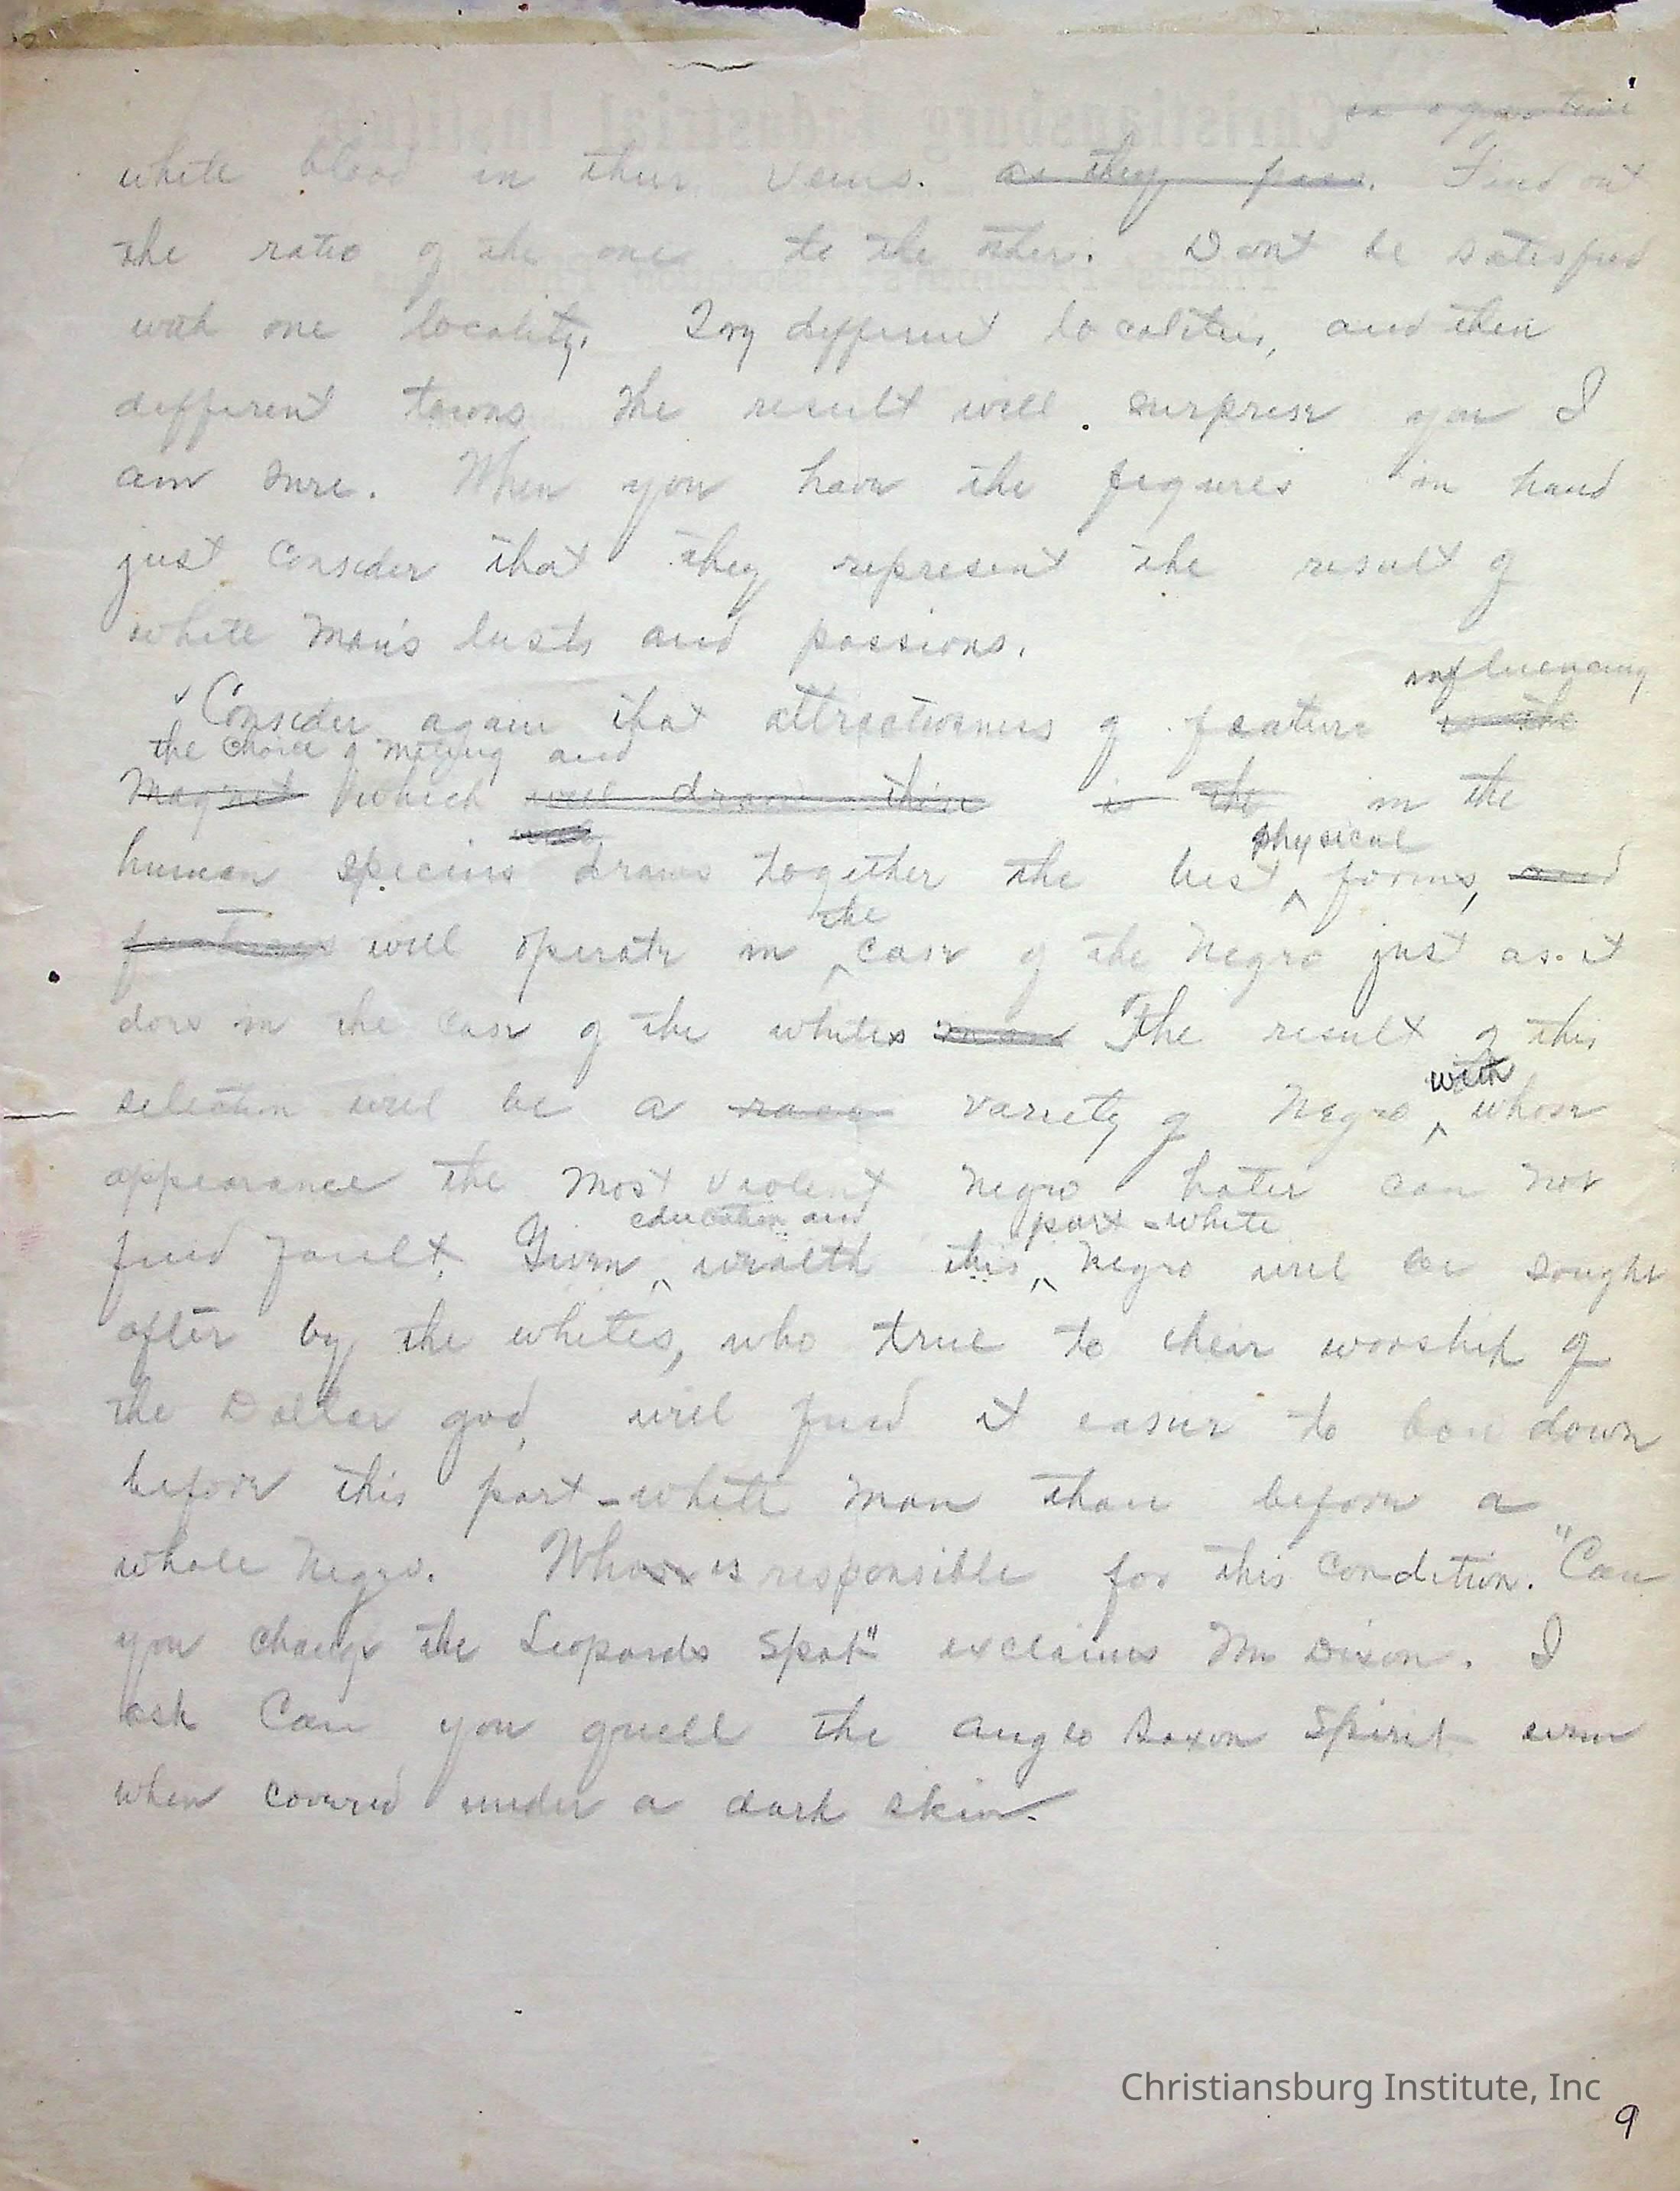 white blood in their veins. as they pass. Find out
the ratio of the one to the other. Dont be satisfied
with one locality. Try different localities, and then
different towns The result will surprise you I
am sure. When you have the figures in hand
just consider that they represent the result of
white man's lusts and passions.
influencing
Consider again that attractiveness of feature is the
the choice of mating and
Magnet which will draw these is the in the
will physical
human species draws together the best forms, and
the
features will operate in case of the Negro just as it
does in the case of the whites man The result of this
with
selection will be a race variety of Negro whose
appearance the most violent negro hater can not
education and part-white
find fault. Given wealth this Negro will be sought
after by the whites, who true to their worship of
the Dollar god, will find it easier to bow down
before this part-white man than before a
whole Negro. Who is responsible for this condition. "Can
you change the Leopards Spot" exclaims Mr Dixon. I
ask Can you quell the Anglo Saxon Spirit even
when covered under a dark skin.
Christiansburg Institute, Inc
9